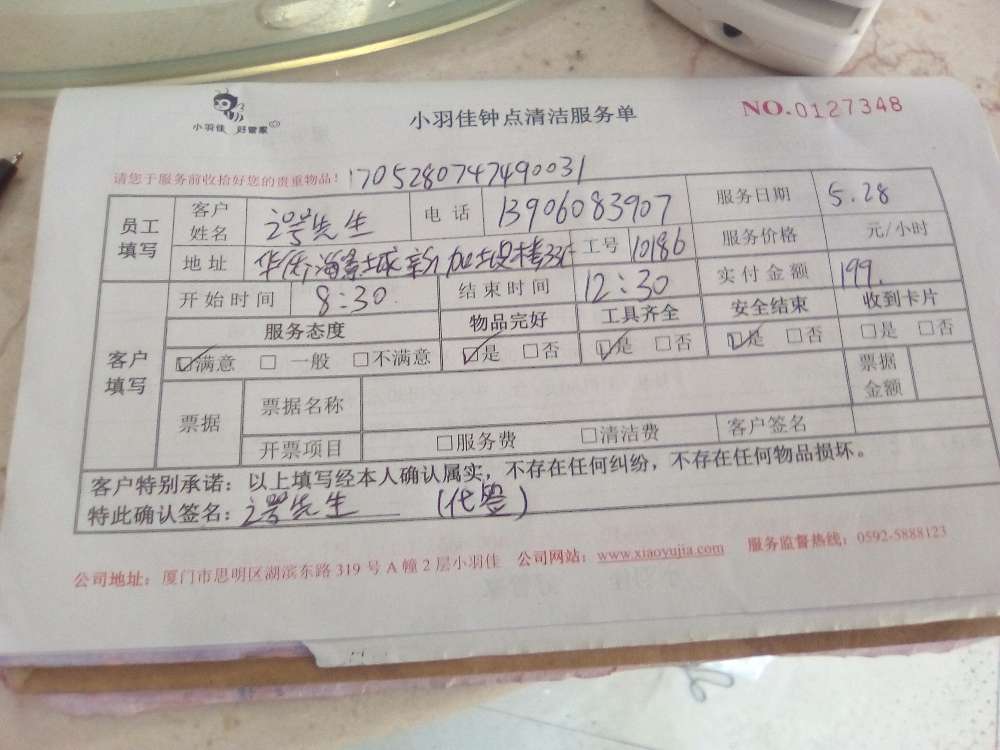 小羽佳 好管家
小羽佳钟点清洁服务单
NO.0127348
请您于服务前收拾好您的贵重物品! 1705280747490031
员工填写 客户姓名 先生 电话 13906083907 服务日期 5.28
地址 华侨海景城新加坡楼 工号 10186 服务价格 元/小时
客户填写 开始时间 8:30 结束时间 12:30 实付金额 199.
服务态度 物品完好 工具齐全 安全结束 收到卡片
☑满意 □一般 □不满意 ☑是 □否 ☑是 □否 ☑是 □否 □是 □否
票据 票据名称 票据金额
开票项目 □服务费 □清洁费 客户签名
客户特别承诺:以上填写经本人确认属实,不存在任何纠纷,不存在任何物品损坏。
特此确认签名: 先生 (代签)
公司地址:厦门市思明区湖滨东路319号A幢2层小羽佳 公司网站:www.xiaoyujia.com 服务监督热线:0592-5888123